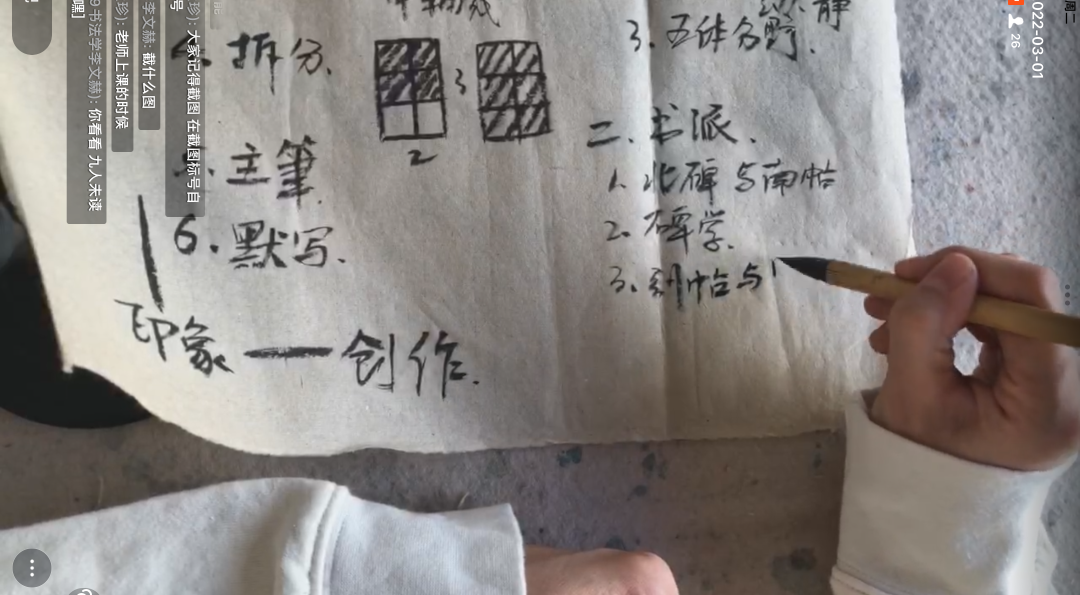 拆分、
3
2
主筆
6. 默写.
印象 — 创作.
静
3. 五体分野.
二. 书派.
1. 北碑与南帖
2. 碑学.
3. 刻帖与
周二
022-03-01
26
珍): 大家记得截图 在截图标号自
号
李文赫: 截什么图
珍): 老师上课的时候
9书法学李文赫): 你看看 九人未读
嘿]